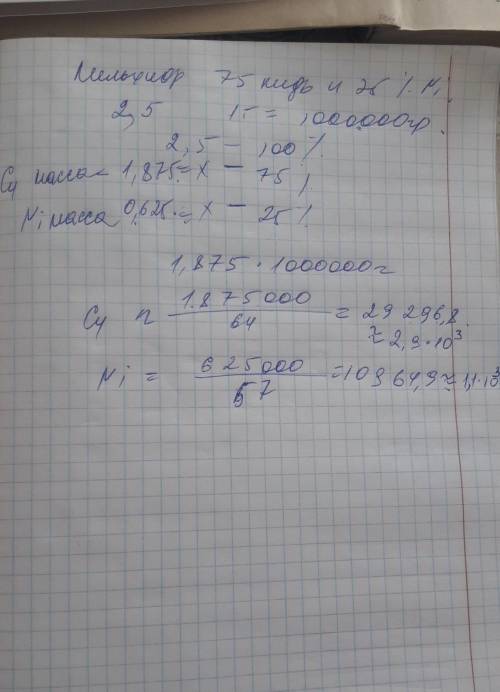 Мельхиор 75 медь и 25 % Ni
2,5 1т = 1000000гр.
2,5 – 100%
Cu масса 1,875 = x – 75 %
Ni масса 0,625 = x – 25%
1,875 · 1000000 =
Cu n 1.875000 / 64 = 29296,8
≈ 2,9·10³
Ni = 625000 / 57 = 10964,9 ≈ 1,1·10³